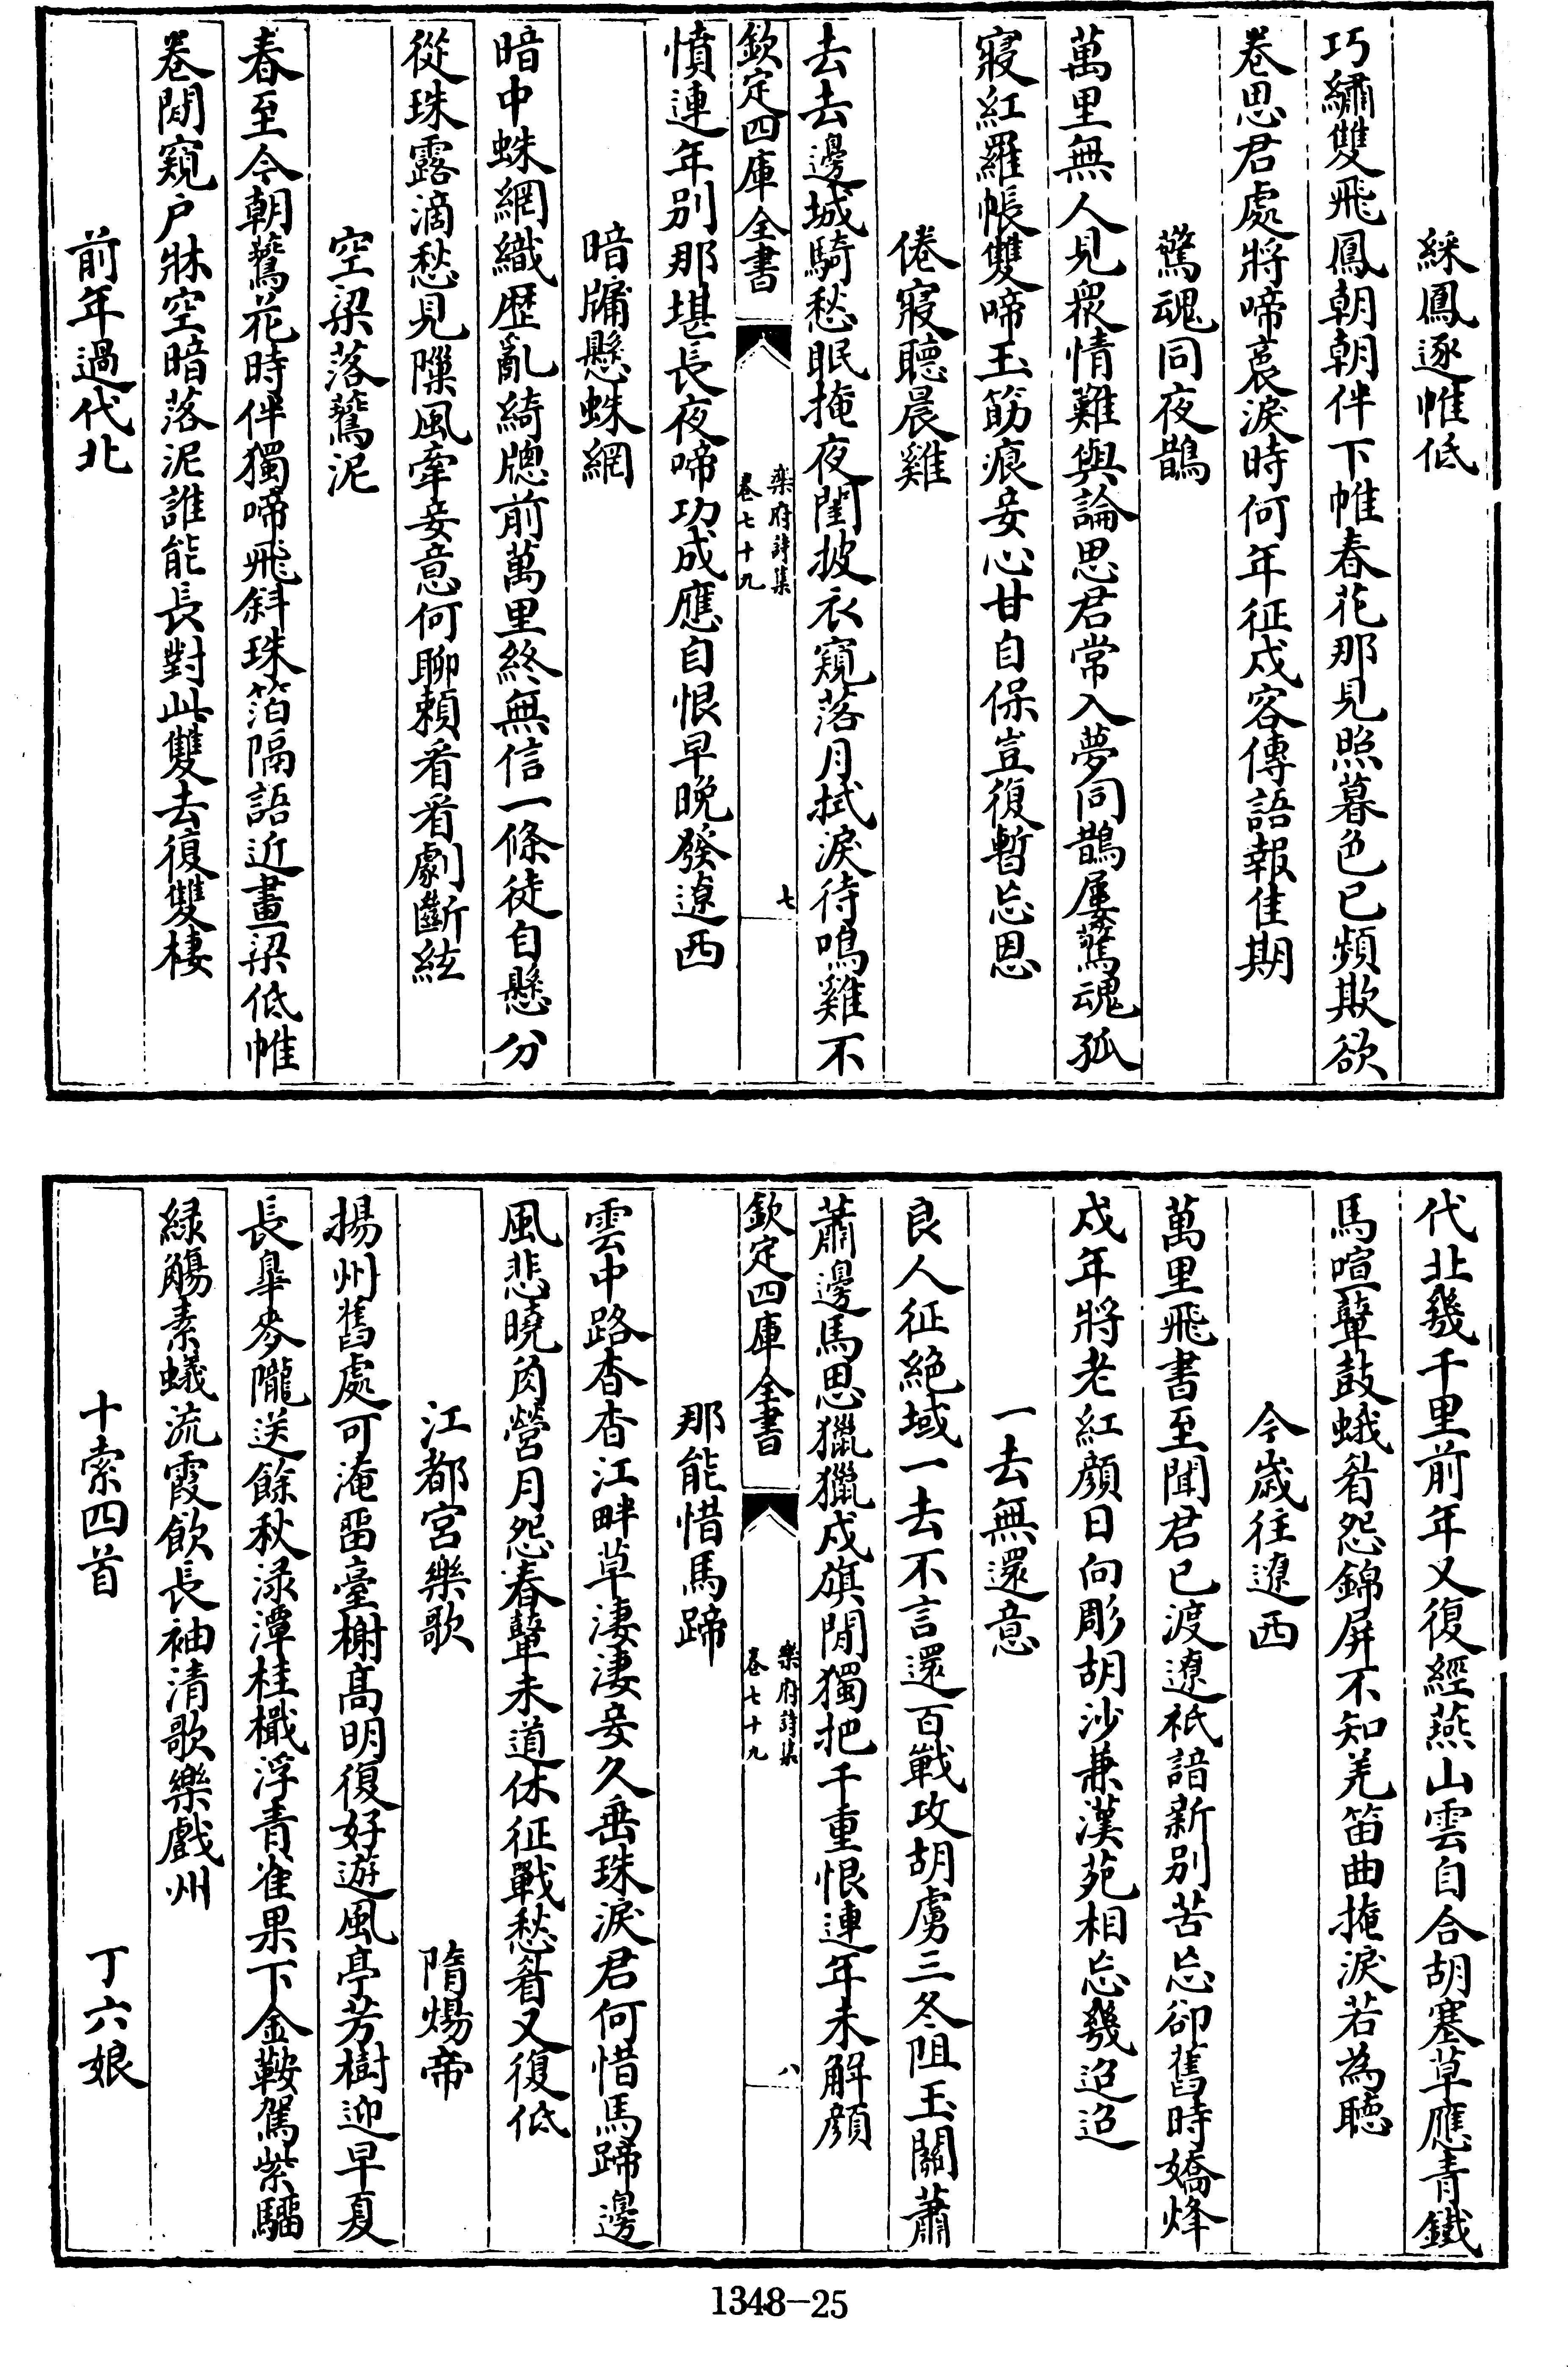 綵鳳逐帷低
巧繡雙飛鳳朝朝伴下帷春花那見照暮色已頻欺欲
卷思君處將啼裛淚時何年征戍客傳語報佳期
驚魂同夜鵲
萬里無人見衆情難與論思君常入夢同鵲屢驚魂孤
寢紅羅帳雙啼玉筯痕妾心甘自保豈復暫忘恩
倦寢聽晨雞
去去邊城騎愁眠掩夜閨披衣窺落月拭淚待鳴雞不
欽定四庫全書
樂府詩集
卷七十九
七
憤連年别那堪長夜啼功成應自恨早晚發遼西
暗牖懸蛛網
暗中蛛網織歴亂綺牎前萬里終無信一條徒自懸分
從珠露滴愁見隟風牽妾意何聊頼看看劇斷絃
空梁落鷰泥
春至今朝鷰花時伴獨啼飛斜珠箔隔語近畫梁低帷
卷閒窺户牀空暗落泥誰能長對此雙去復雙棲
前年過代北
代北幾千里前年又復經燕山雲自合胡塞草應青鐵
馬喧鼙鼓蛾眉怨錦屏不知羌笛曲掩淚若為聽
今歲往遼西
萬里飛書至聞君已渡遼祇諳新别苦忘卻舊時嬌烽
戍年將老紅顔日向彫胡沙兼漢苑相忘幾迢迢
一去無還意
良人征絕域一去不言還百戰攻胡虜三冬阻玉關蕭
蕭邊馬思獵獵戍旗閒獨把千重恨連年未解顔
欽定四庫全書
樂府詩集
卷七十九
八
那能惜馬蹄
雲中路杳杳江畔草淒淒妾久垂珠淚君何惜馬蹄邊
風悲曉角營月怨春鼙未道休征戰愁眉又復低
江都宫樂歌
隋煬帝
揚州舊處可淹留臺榭髙明復好遊風亭芳樹迎早夏
長臯麥隴送餘秋渌潭桂檝浮青雀果下金鞍駕紫騮
緑觴素蟻流霞飲長袖清歌樂戲州
十索四首
丁六娘
1348-25